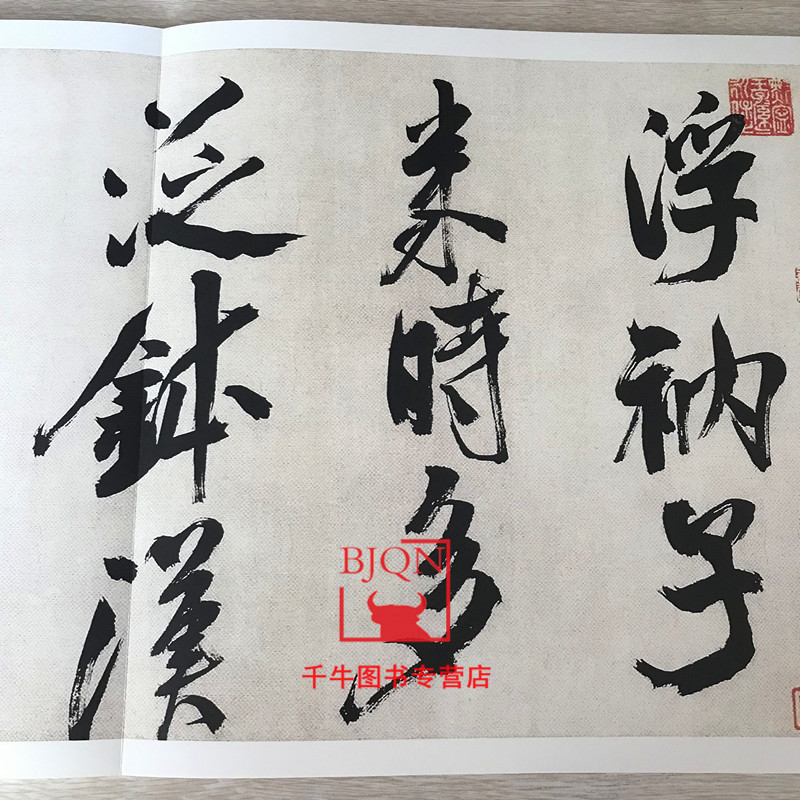 浮衲子
来時多
泛鉢漢
BJQN
千牛图书专营店